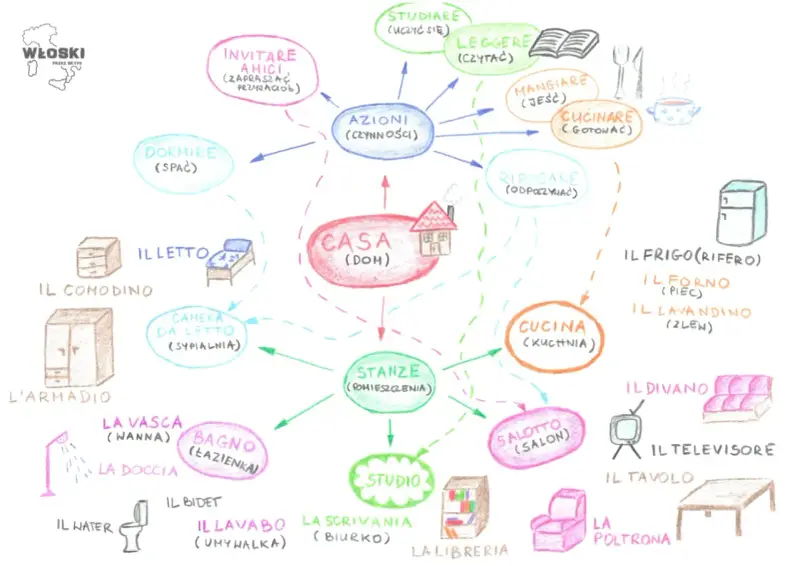 WŁOSKI
STUDIARE
(UCZYĆ SIĘ)
LEGGERE
(CZYTAĆ)
INVITARE
AMICI
(ZAPRASZAĆ
PRZYJACIÓŁ)
MANGIARE
(JEŚĆ)
CUCINARE
(GOTOWAĆ)
AZIONI
(CZYNNOŚCI)
DORMIRE
(SPAĆ)
RIPOSARE
(ODPOCZYWAĆ)
CASA
(DOM)
IL LETTO
IL COMODINO
IL FRIGO(RIFERO)
IL FORNO
(PIEC)
IL LAVANDINO
(ZLEW)
CAMERA
DA LETTO
(SYPIALNIA)
CUCINA
(KUCHNIA)
STANZE
(POMIESZCZENIA)
L'ARMADIO
IL DIVANO
LA VASCA
(WANNA)
BAGNO
(ŁAZIENKA)
SALOTTO
(SALON)
IL TELEVISORE
LA DOCCIA
STUDIO
IL TAVOLO
IL BIDET
IL WATER
IL LAVABO
(UMYWALKA)
LA SCRIVANIA
(BIURKO)
LA LIBRERIA
LA
POLTRONA